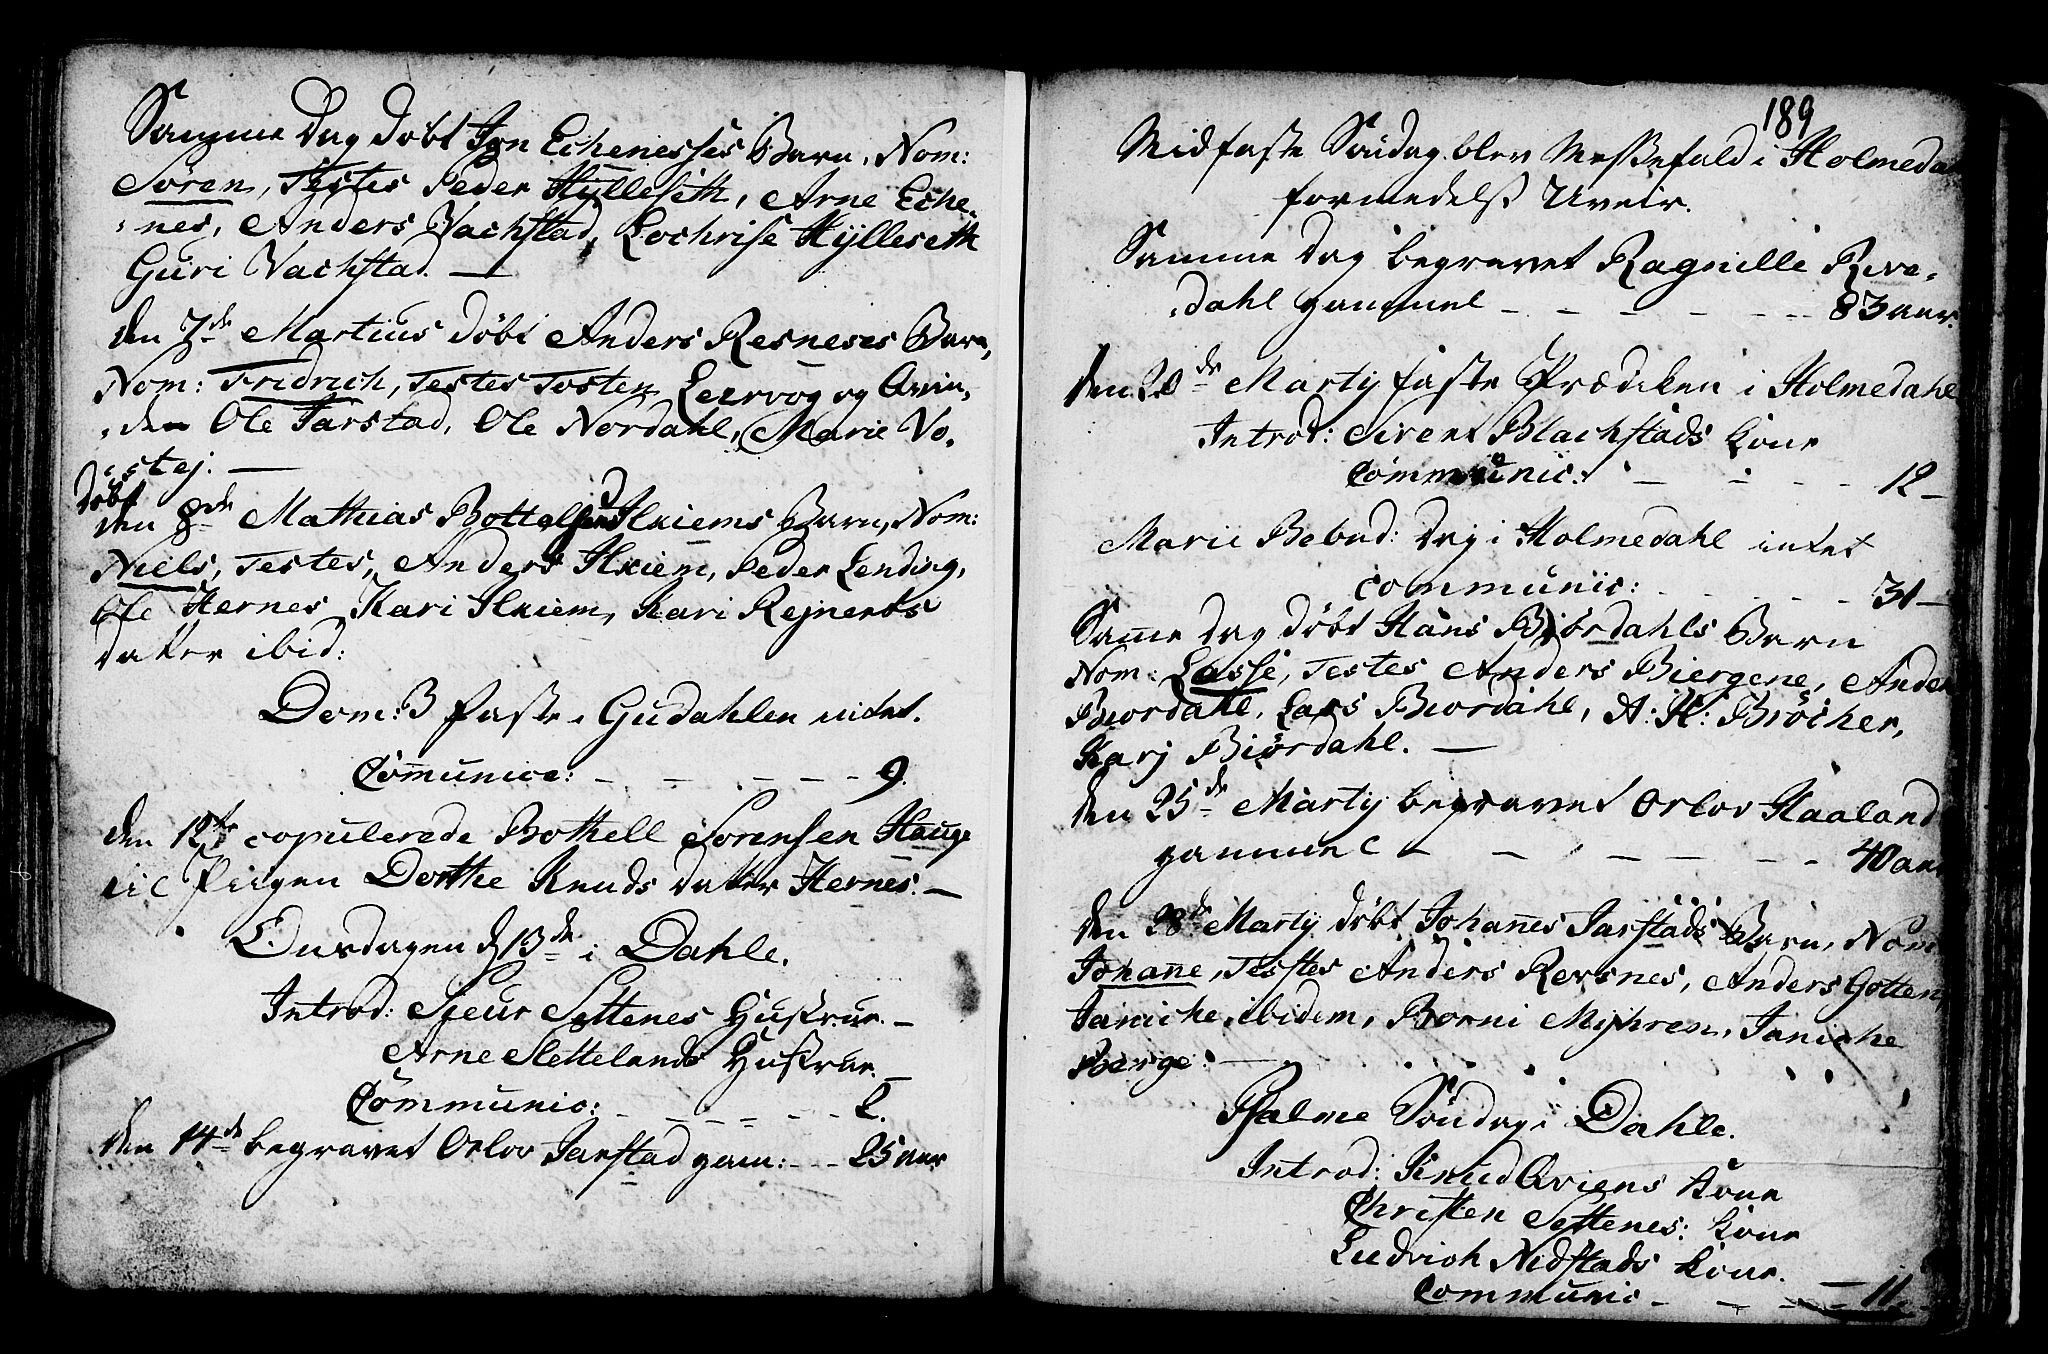 Samme Dag døbt Jon Echenesses Barn, Nom:
Søren, Testes Peder Hÿlleseth, Arne Eche-
nes, Anders Vachstad, Lochrise Hÿlleseth
Guri Vachstad. —
den 7de Martius døbt Anders Resneses Barn,
Nom: Fridrich, Testes Tosten Leervog og Qvin,
den Ole Jarstad, Ole Nordahl, Marie Vo,
stej. —
døbt
den 8de Mathias Bottelsens Hiems Barn, Nom:
Niels, Testes, Anders Hiem, Peder Lending,
Ole Hernes, Kari Hiem, Kari Rejnerts
datter ibid:
Dom: 3 faste i Gudahlen intet.
Comunice: - - - - - 9.
den 12te copulerede Bothell Sørensen Hauge
til Pigen Dorthe Knuds datter Hernes. —
Onsdagen d 13de i Dahle.
Introd: Sjeur Settenes Hustrue. —
Arne Slettelands Hustrue. —
Communic: - - - - - 2.
den 14de begravet Orlov Jarstad gam: - - 25 aar
189
Midfaste Søndag blev Messefald i Holmedal
formedelst Uveir.
Samme Dag begravet Ragnille Rive-
dahl gammel - - - - - - 83 aar.
den 20de Martij faste Prædiken i Holmedahl
Introd: Sivert Blachstads Kone
Communic: - - - - 12 —
Marie Bebud: Dag i Holmedahl intet
communic: - - - - - 31 —
Same Dag døbt Hans Biørdahls Barn
Nom: Lasse, Testes Anders Biergene, Anders
Biørdahl, Lars Biørdahl, A: H: Brøcher,
Karj Biørdahl. —
den 25de Martij begravet Orlov Haaland
gammel - - - - - - 40 aar
den 28de Martij døbt Johanes Jarstads Barn, Nom
Johane, Testes Anders Rersnes, Anders Gotten,
Janiche ibidem, Borni Mÿhren, Janiche
Berge: —
Psalme Søndag i Dahle.
Introd: Knud Qviens Kone
Christen Settenes: Kone
Ludrich Nidstads Kone.
Communic - - - - 11.